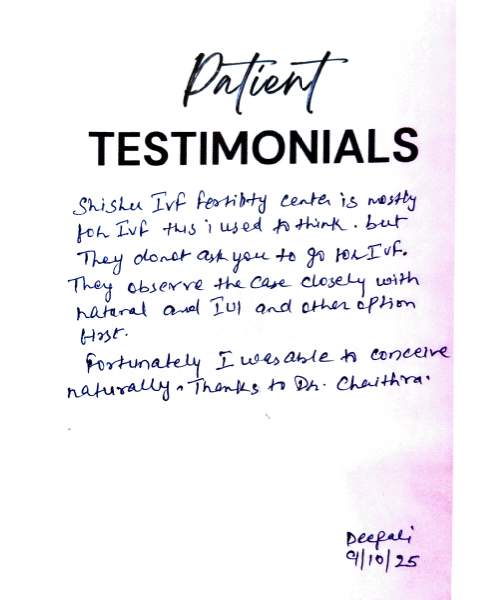 Patient
TESTIMONIALS
Shishu Ivf fertility center is mostly
for Ivf this i used to think. but
They donot ask you to go for Ivf.
They observe the case closely with
natural and IUI and other option
first.
Fortunately I was able to conceive
naturally. Thanks to Dr. Chaithra.
Deepali
9/10/25